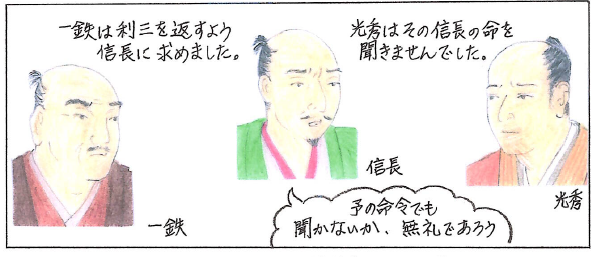 一鉄は利三を返すよう
信長に求めました。
光秀はその信長の命を
聞きませんでした。
一鉄
信長
光秀
予の命令でも
聞かないか、無礼であろう